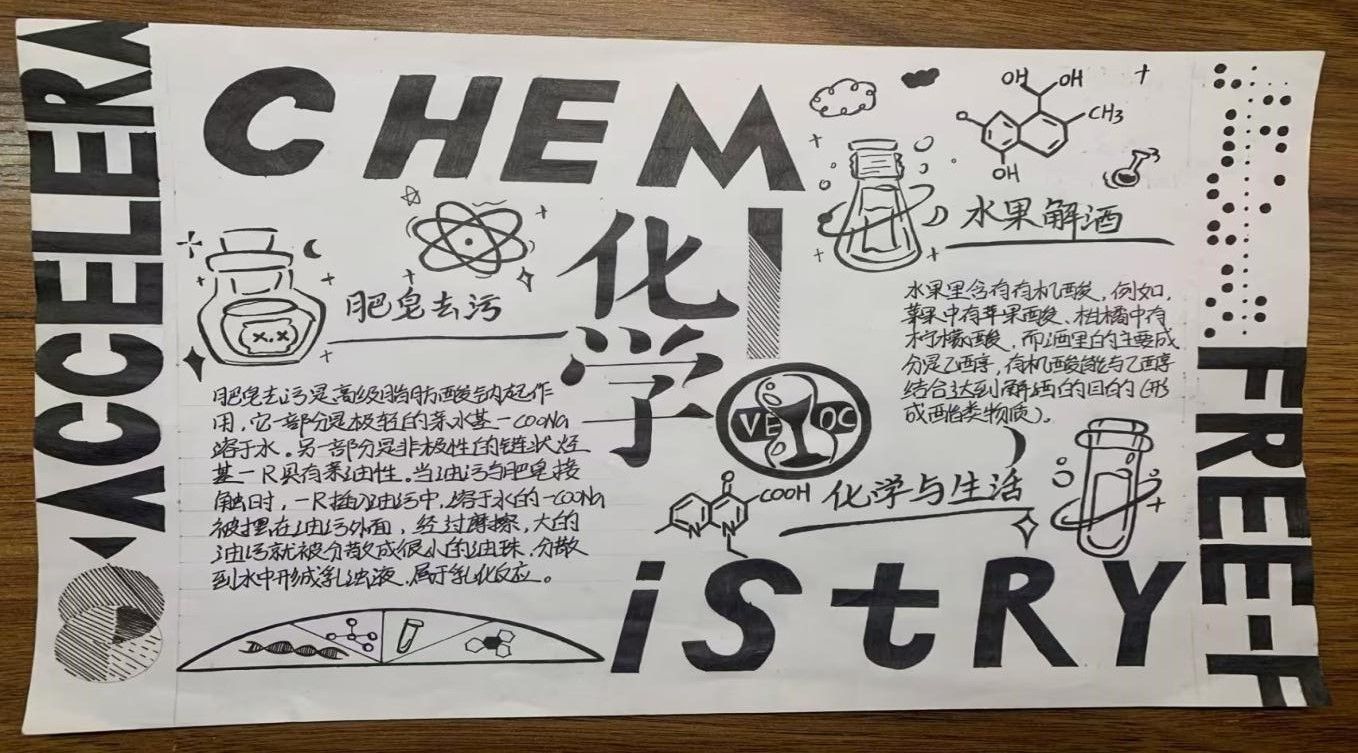 ACCELERA
CHEM
化学
I
iStRY
FREE-F
肥皂去污
肥皂去污是高级脂肪酸钠起作
用，它一部分是极轻的亲水基－COONa
溶于水。另一部分是非极性的链状烃
基－R具有亲油性。当油污与肥皂接
触时，－R插入油污中，溶于水的－COONa
被摆在油污外面，经过摩擦，大的
油污就被分散成很小的油珠，分散
到水中形成乳浊液，属于乳化反应。
OH OH
CH3
O
OH
水果解酒
水果里含有有机酸，例如，
苹果中有苹果酸、柑橘中有
柠檬酸，而酒里的主要成
分是乙醇，有机酸能与乙醇
结合达到解酒的目的（形
成酯类物质）。
VE OC
O
COOH
N N
化学与生活